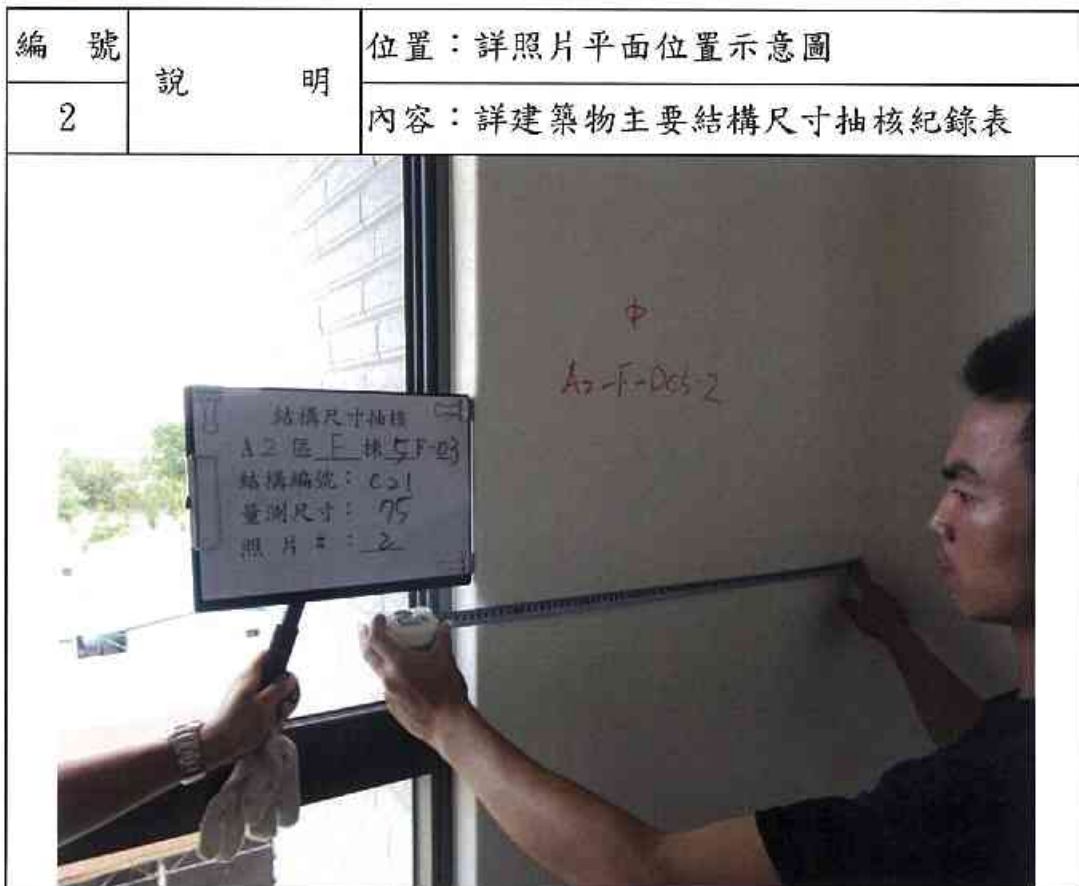 編 號
說 明
位置：詳照片平面位置示意圖
2
內容：詳建築物主要結構尺寸抽核紀錄表
中
A2-F-
結構尺寸抽核
A2 區 F 棟 5F-03
結構編號：C21
量測尺寸：75
照 片 #：2